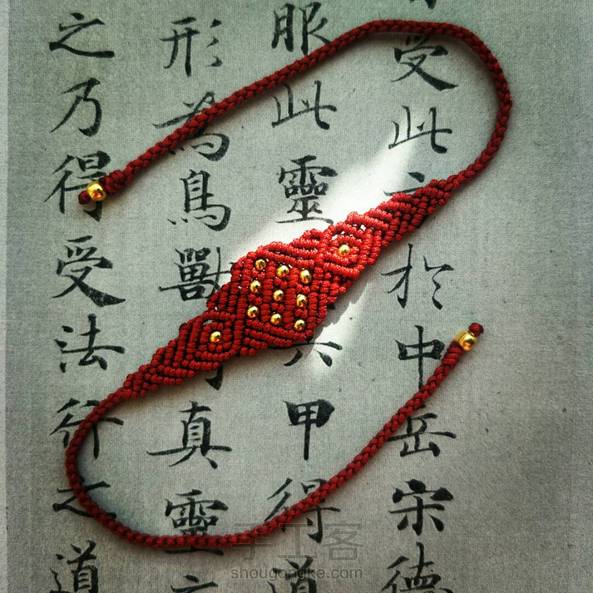 受此於中岳宋德
服此靈甲得道
形為鳥獸真靈六
之乃得受法行之道
手工客
shougongke.com